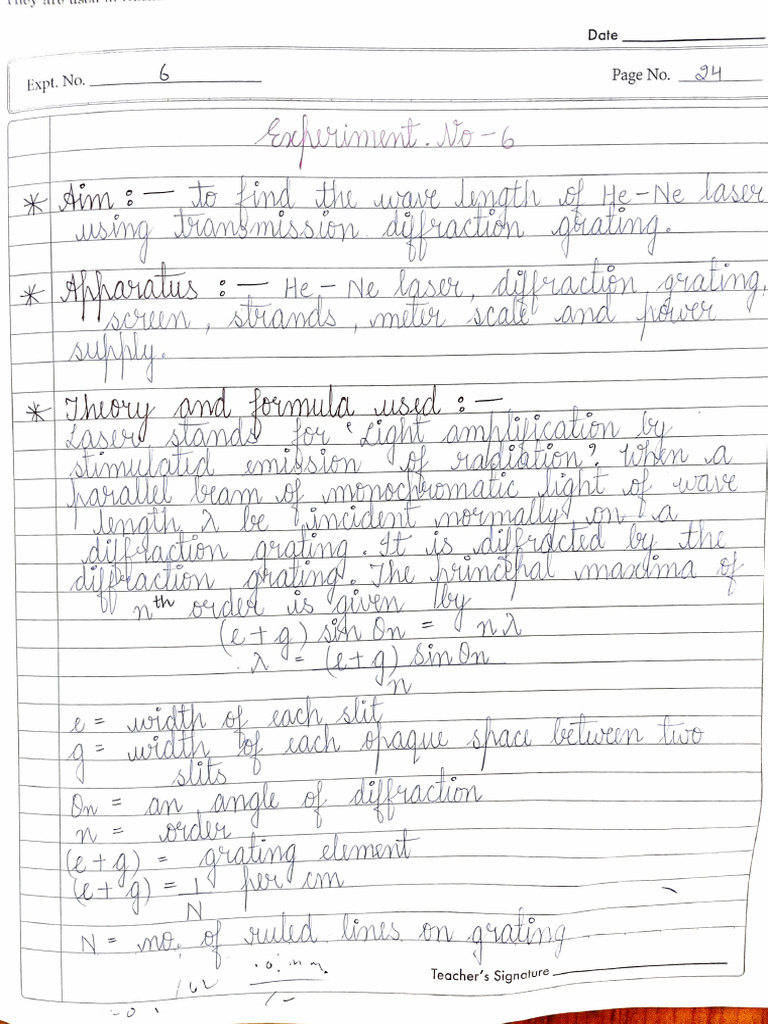 They are used in
Date
Expt. No. 6
Page No. 24
Experiment. No - 6
* Aim : — to find the wave length of He - Ne laser
using transmission diffraction grating.
* Apparatus : — He - Ne laser, diffraction grating,
screen, strands, meter scale and power
supply.
* Theory and formula used : —
Laser stands for 'Light amplification by
stimulated emission of radiation? When a
parallel beam of monochromatic light of wave
length λ be incident normally on a
diffraction grating. It is diffracted by the
diffraction grating. The principal maxima of
nth order is given by
(e + g) sin On = nλ
λ = (e + g) sin On
n
e = width of each slit
g = width of each opaque space between two
slits
On = an angle of diffraction
n = order
(e + g) = grating element
(e + g) = 1 per cm
N
N = no. of ruled lines on grating
Teacher's Signature